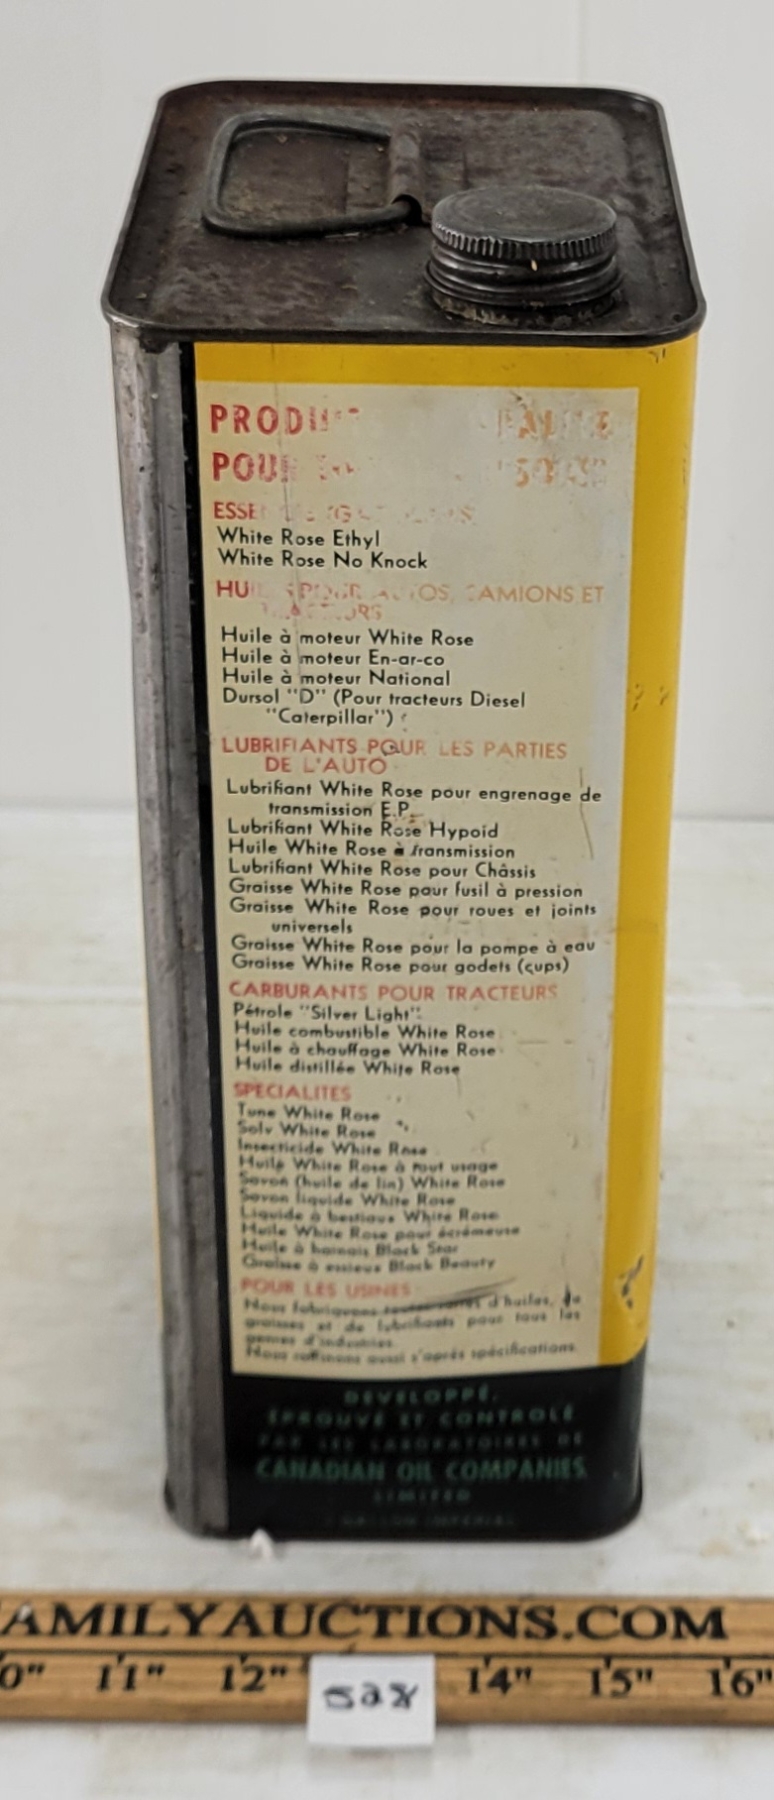 White Rose Ethyl
White Rose No Knock
CAMIONS ET
Huile à moteur White Rose
Huile à moteur En-ar-co
Huile à moteur National
Dursol "D" (Pour tracteurs Diesel
"Caterpillar")
LUBRIFIANTS POUR LES PARTIES
DE L'AUTO
Lubrifiant White Rose pour engrenage de
transmission E.P.
Lubrifiant White Rose Hypoid
Huile White Rose à transmission
Lubrifiant White Rose pour Châssis
Graisse White Rose pour fusil à pression
Graisse White Rose pour roues et joints
universels
Graisse White Rose pour la pompe à eau
Graisse White Rose pour godets (cups)
CARBURANTS POUR TRACTEURS
Pétrole "Silver Light"
Huile combustible White Rose
Huile à chauffage White Rose
Huile distillée White Rose
SPECIALITES
Tune White Rose
Solv White Rose
Insecticide White Rose
Huile White Rose à tout usage
Savon (huile de lin) White Rose
Savon liquide White Rose
Liquide à bestiaux White Rose
Huile White Rose pour écrémeuse
Huile à harnais Black Star
Graisse à essieux Black Beauty
POUR LES USINES
Nous fabriquons toutes sortes d'huiles, de
graisses et de lubrifiants pour tous les
genres d'industries.
Nous raffinons aussi d'après spécifications.
DEVELOPPÉ,
ÉPROUVÉ ET CONTROLÉ
PAR LES LABORATOIRES DE
CANADIAN OIL COMPANIES
LIMITED
AMILYAUCTIONS.COM
0" 11" 12" 14" 15" 16"
528